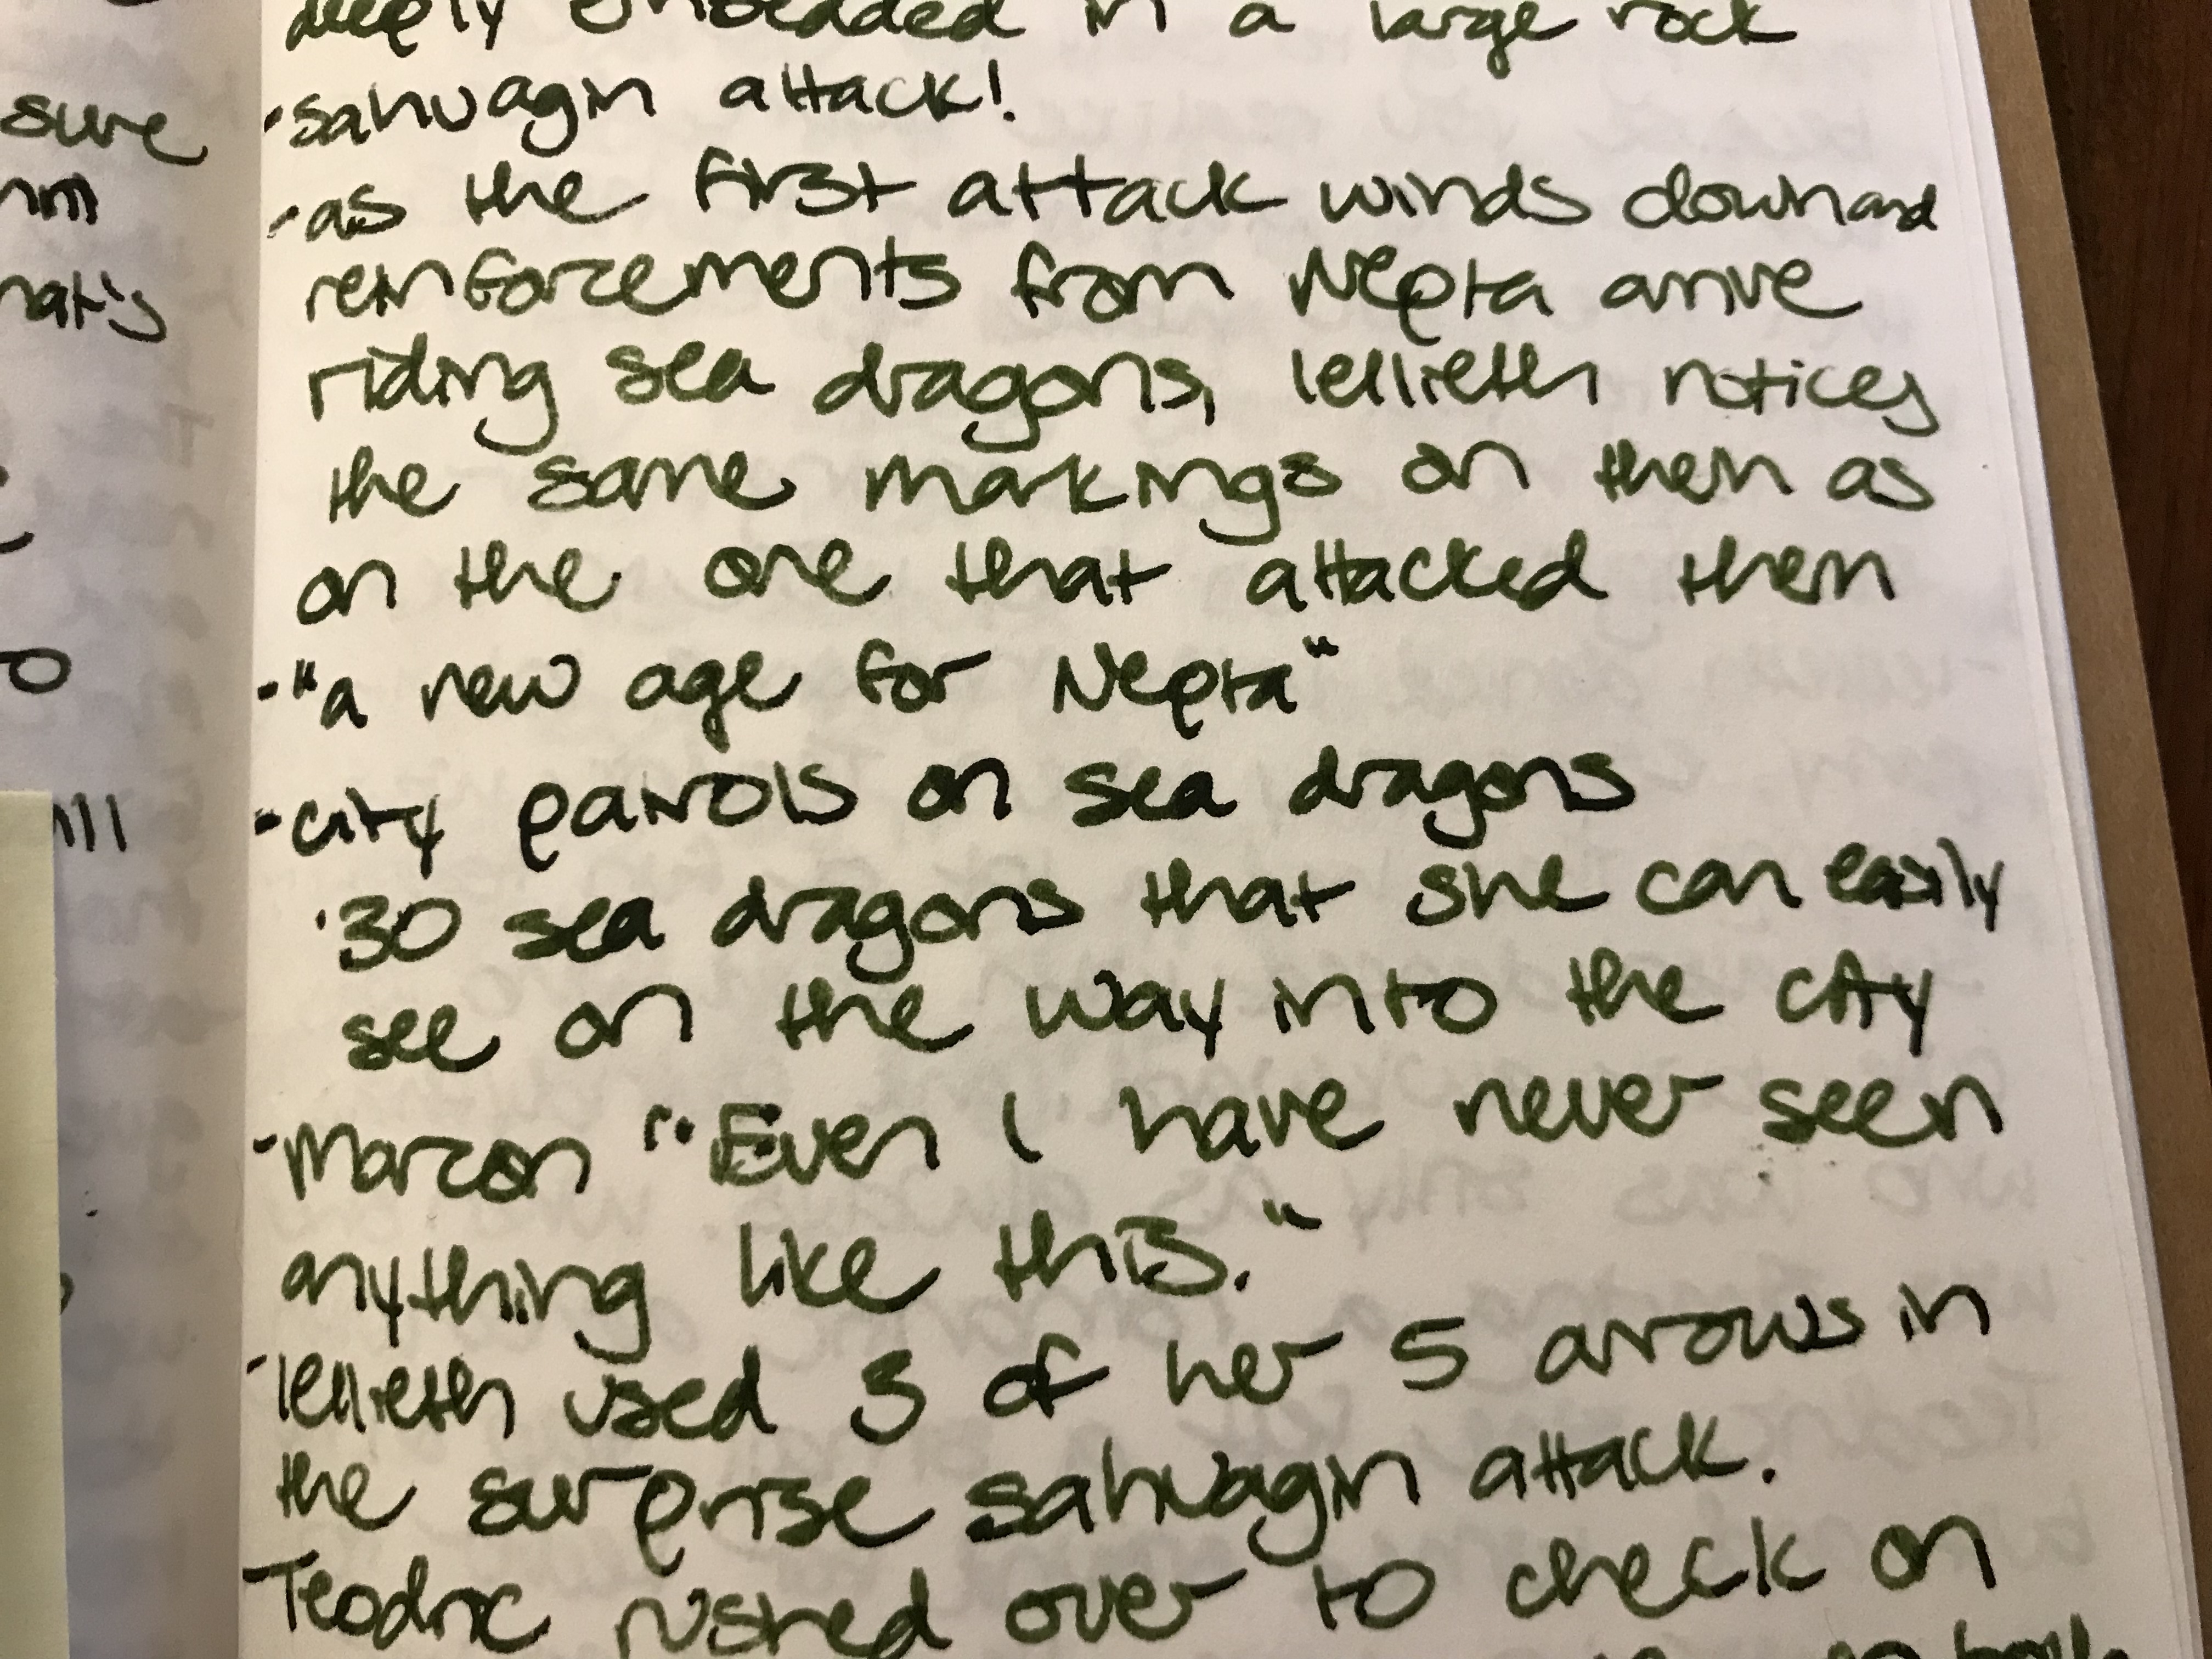 sure
deeply embedded in a large rock
-sahuagin attack!
-as the first attack winds down and
reinforcements from Nepta arrive
riding sea dragons, lellieth notices
the same markings on them as
on the one that attacked them
-"a new age for Nepta"
-city patrols on sea dragons
·30 sea dragons that she can easily
see on the way into the city
-Marcon "Even I have never seen
anything like this."
-lellieth used 3 of her 5 arrows in
the surprise sahuagin attack.
-Teodric rushed over to check on